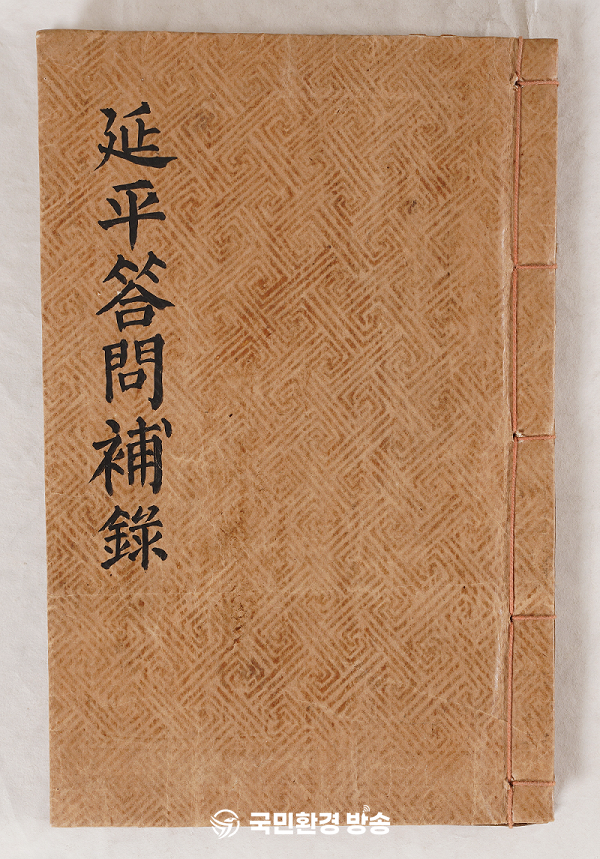 延平答問補錄
국민환경 방송